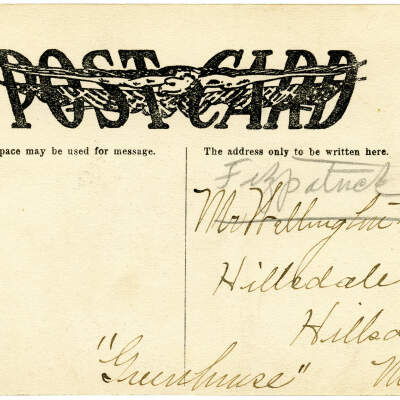 POST CARD
pace may be used for message.
The address only to be written here.
Fitzpatrick
Mr Wellington
Hillsdale
Hillsd
"Greenhouse"
M